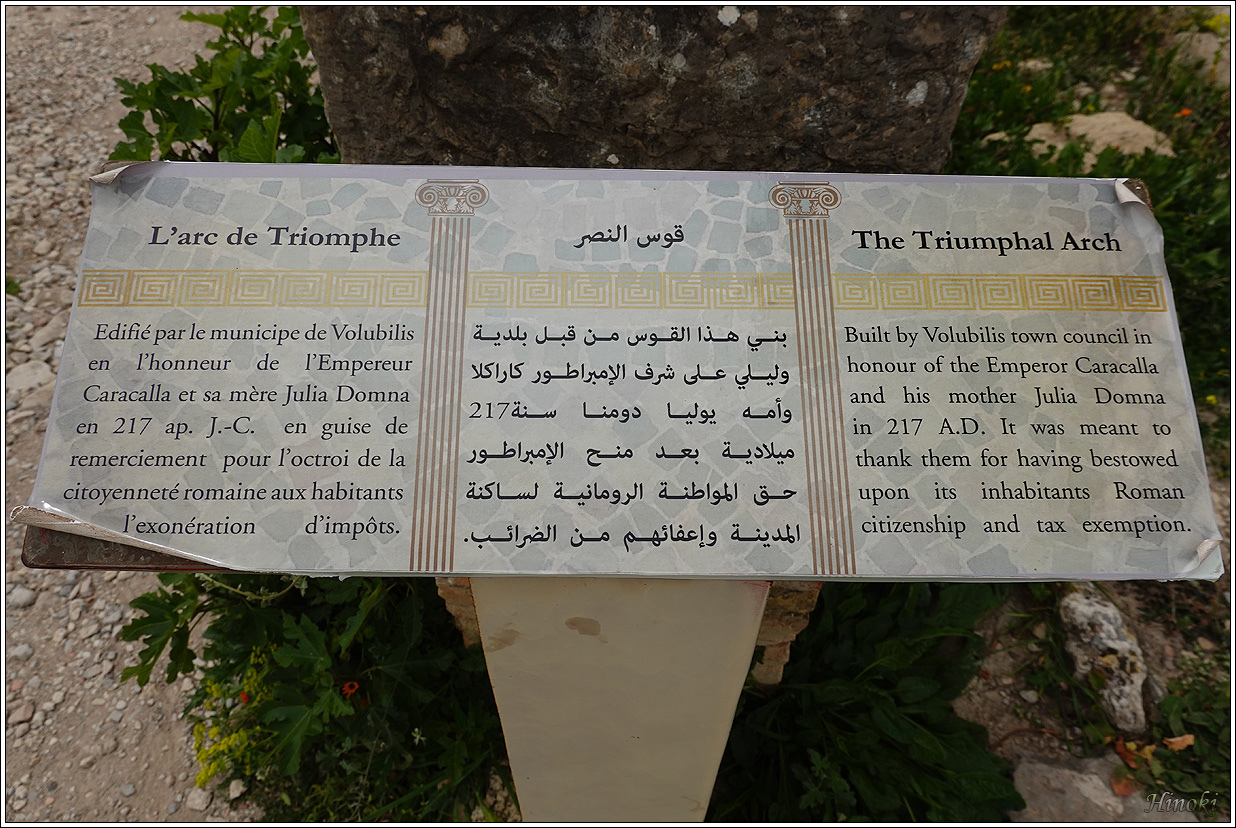 L'arc de Triomphe
Edifié par le municipe de Volubilis
en l'honneur de l'Empereur
Caracalla et sa mère Julia Domna
en 217 ap. J.-C. en guise de
remerciement pour l'octroi de la
citoyenneté romaine aux habitants
l'exonération d'impôts.
قوس النصر
بني هذا القوس من قبل بلدية
وليلي على شرف الإمبراطور كاراكلا
وأمه يوليا دومنا سنة217
ميلادية بعد منح الإمبراطور
حق المواطنة الرومانية لساكنة
المدينة وإعفائهم من الضرائب.
The Triumphal Arch
Built by Volubilis town council in
honour of the Emperor Caracalla
and his mother Julia Domna
in 217 A.D. It was meant to
thank them for having bestowed
upon its inhabitants Roman
citizenship and tax exemption.
Hinoki